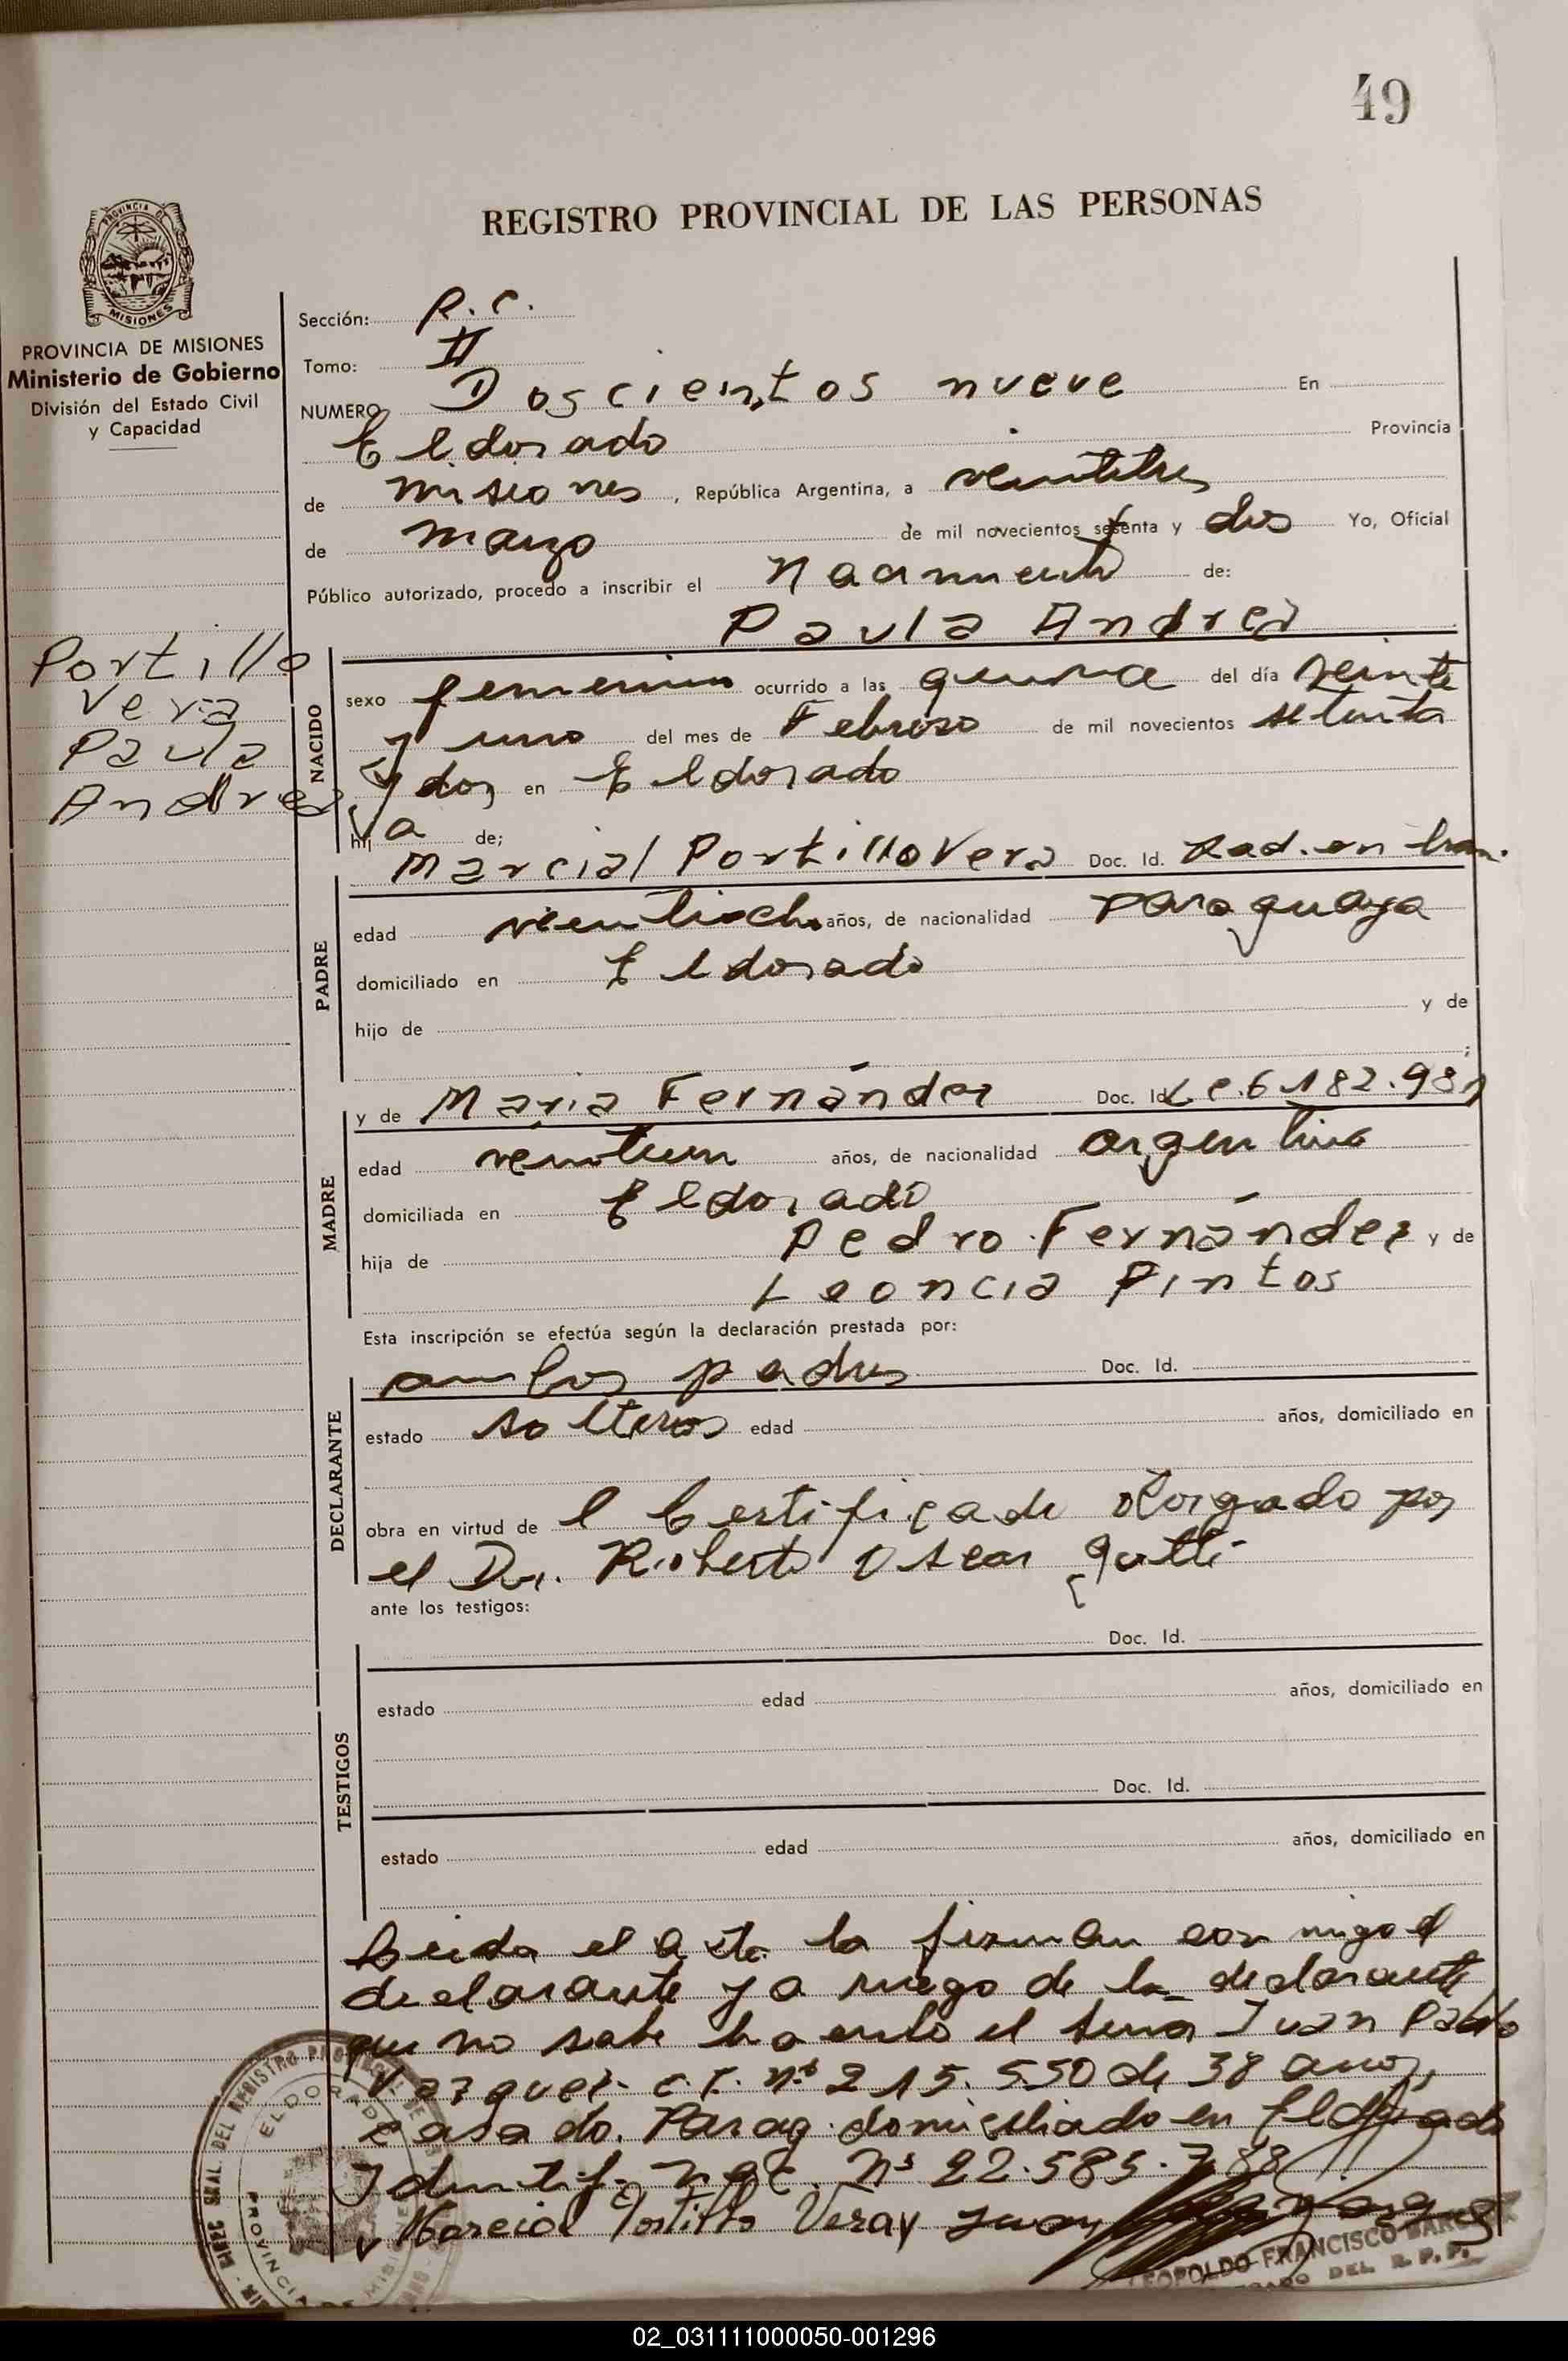 49
REGISTRO PROVINCIAL DE LAS PERSONAS
PROVINCIA DE MISIONES
Ministerio de Gobierno
División del Estado Civil
y Capacidad
Sección: R.C.
Tomo: II
NUMERO Doscientos nueve En
Eldorado Provincia
de misiones, República Argentina, a veintitres
de marzo de mil novecientos setenta y dos Yo, Oficial
Público autorizado, procedo a inscribir el Nacimiento de:
Paula Andrea
Portillo
Vera
Paula
Andrea
NACIDO
sexo femenino ocurrido a las quince del día veinte
y uno del mes de Febrero de mil novecientos setenta
y dos en Eldorado
hija de;
Marcial Portillo Vera Doc. Id. Rad. en tram.
PADRE
edad veintiocho años, de nacionalidad paraguaya
domiciliado en Eldorado
hijo de y de
;
y de Maria Fernández Doc. Id. L.C. 6.182.981
MADRE
edad veintiun años, de nacionalidad argentina
domiciliada en Eldorado
hija de Pedro Fernández y de
Leoncia Pintos
Esta inscripción se efectúa según la declaración prestada por:
ambos padres Doc. Id.
DECLARANTE
estado solteros edad años, domiciliado en
obra en virtud de l Certificado otorgado por
el Dr. Roberto Oscar
ante los testigos:
Doc. Id.
TESTIGOS
estado edad años, domiciliado en
Doc. Id.
estado edad años, domiciliado en
Leida el acta la firman con migo el
declarante y a ruego de la declarante
que no sabe hacerlo el señor Juan Pablo
Vazquez C.I. nº 215.550 de 38 años,
casado. Parag. domiciliado en Eldorado
Identif. Nº 22.585.788
Marcial Portillo Vera y Juan
LEOPOLDO FRANCISCO
DEL R.P.P.
02_031111000050-001296